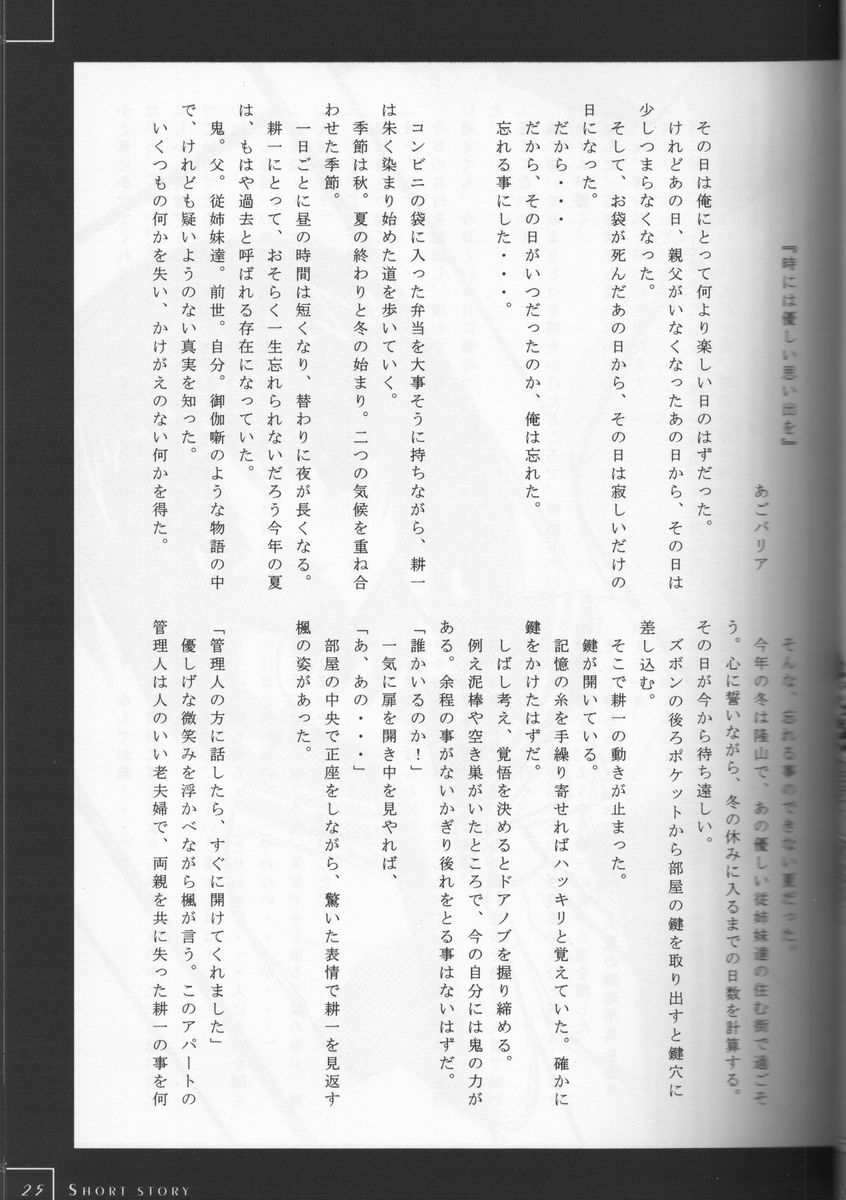 『時には優しい思い出を』
あごバリア
その日は俺にとって何より楽しい日のはずだった。
けれどあの日、親父がいなくなったあの日から、その日は
少しつまらなくなった。
そして、お袋が死んだあの日から、その日は寂しいだけの
日になった。
だから・・・
だから、その日がいつだったのか、俺は忘れた。
忘れる事にした・・・。
コンビニの袋に入った弁当を大事そうに持ちながら、耕一
は朱く染まり始めた道を歩いていく。
季節は秋。夏の終わりと冬の始まり。二つの気候を重ね合
わせた季節。
一日ごとに昼の時間は短くなり、替わりに夜が長くなる。
耕一にとって、おそらく一生忘れられないだろう今年の夏
は、もはや過去と呼ばれる存在になっていた。
鬼。父。従姉妹達。前世。自分。御伽噺のような物語の中
で、けれども疑いようのない真実を知った。
いくつもの何かを失い、かけがえのない何かを得た。
そんな、忘れる事のできない夏だった。
今年の冬は隆山で、あの優しい従姉妹達の住む街で過ごそ
う。心に誓いながら、冬の休みに入るまでの日数を計算する。
その日が今から待ち遠しい。
ズボンの後ろポケットから部屋の鍵を取り出すと鍵穴に
差し込む。
そこで耕一の動きが止まった。
鍵が開いている。
記憶の糸を手繰り寄せればハッキリと覚えていた。確かに
鍵をかけたはずだ。
しばし考え、覚悟を決めるとドアノブを握り締める。
例え泥棒や空き巣がいたところで、今の自分には鬼の力が
ある。余程の事がないかぎり後れをとる事はないはずだ。
「誰かいるのか！」
一気に扉を開き中を見やれば、
「あ、あの・・・」
部屋の中央で正座をしながら、驚いた表情で耕一を見返す
楓の姿があった。
「管理人の方に話したら、すぐに開けてくれました」
優しげな微笑みを浮かべながら楓が言う。このアパートの
管理人は人のいい老夫婦で、両親を共に失った耕一の事を何
25 SHORT STORY